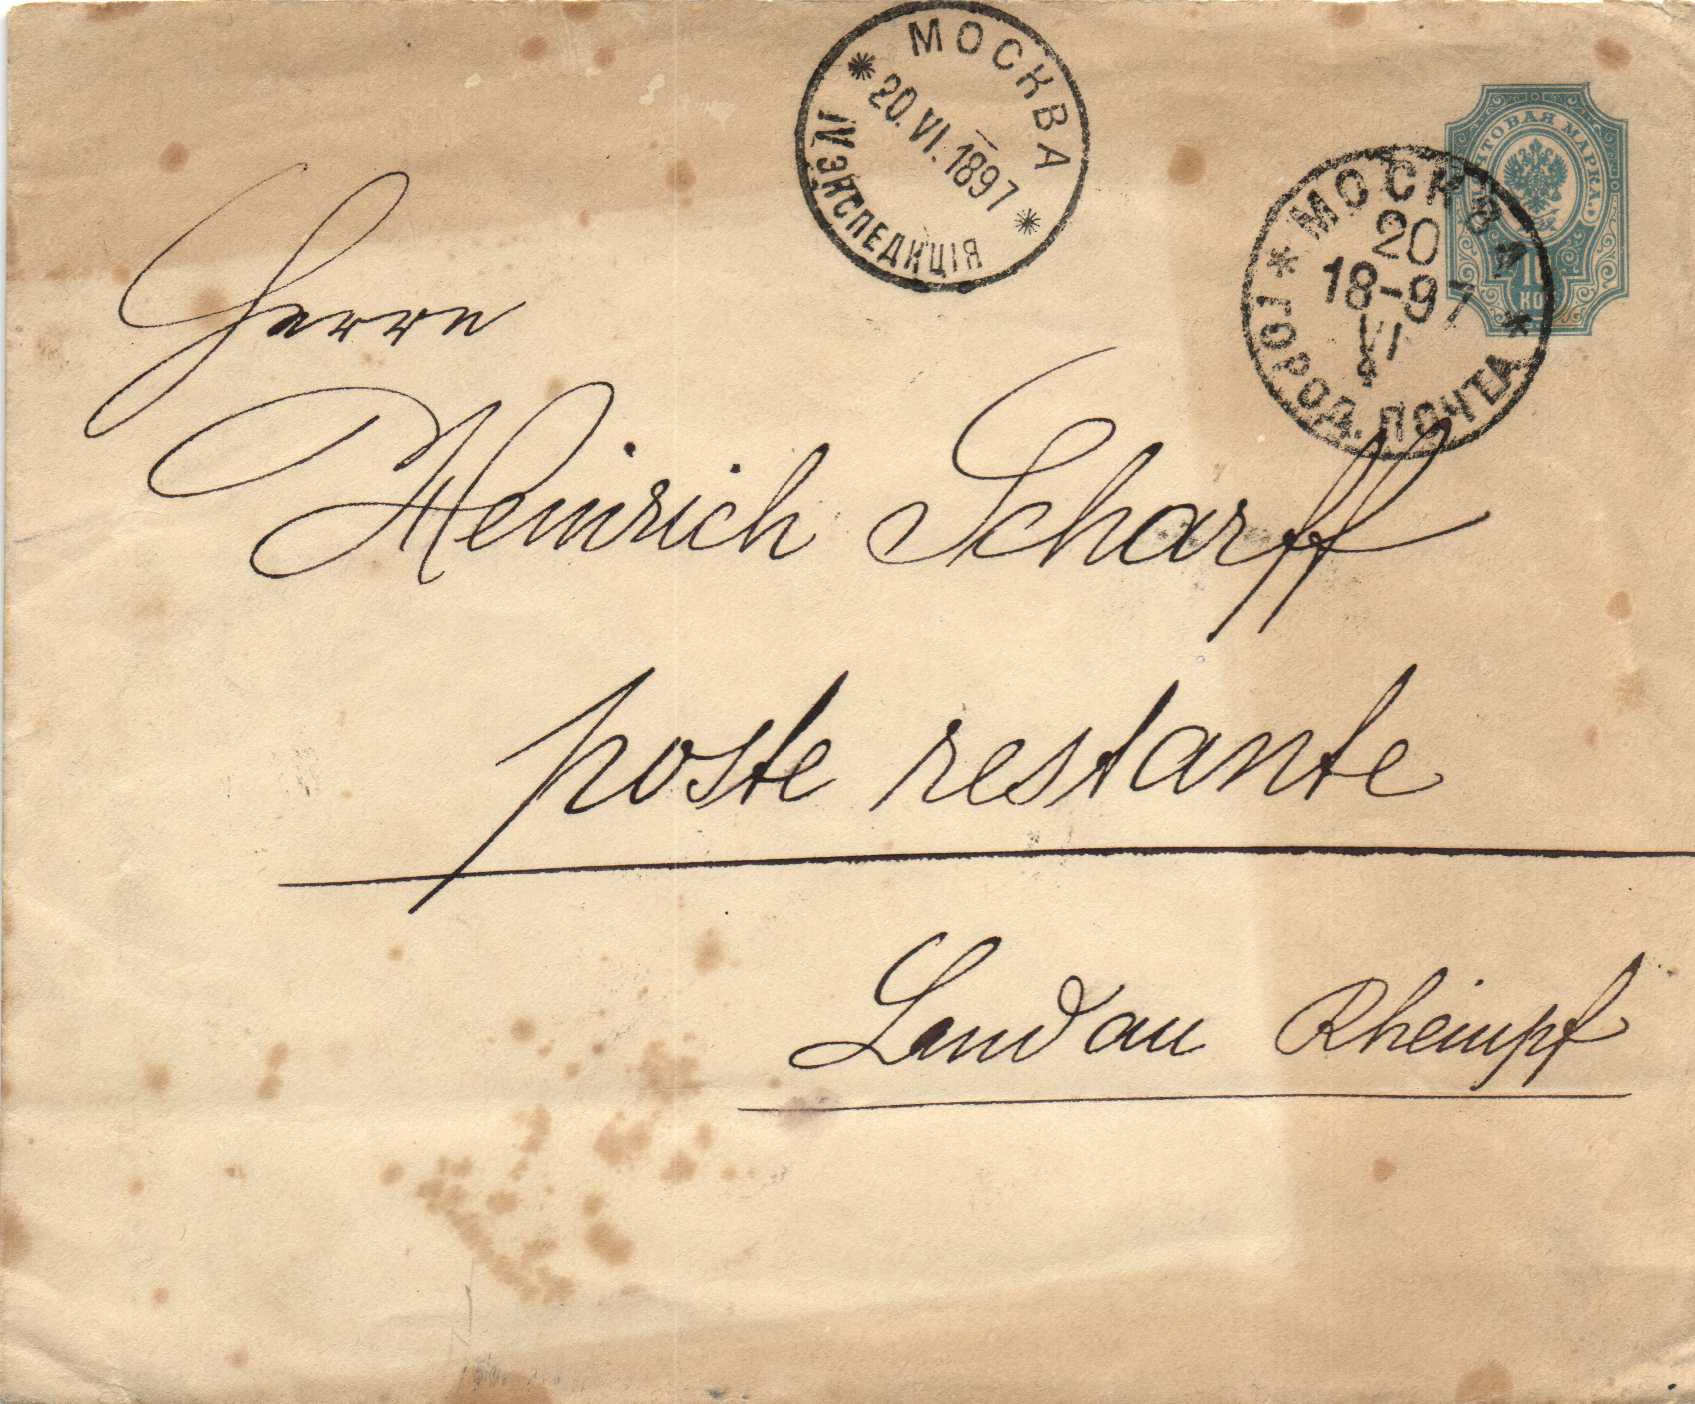 МОСКВА
20.VI.1897
ЭКСПЕДИЦІЯ
ПОЧТОВАЯ МАРКА
10
КОП
МОСКВА
20
18-97
VI
ГОРОД. ПОЧТА
Herrn
Heinrich Scharff
poste restante
Landau Rheinpf